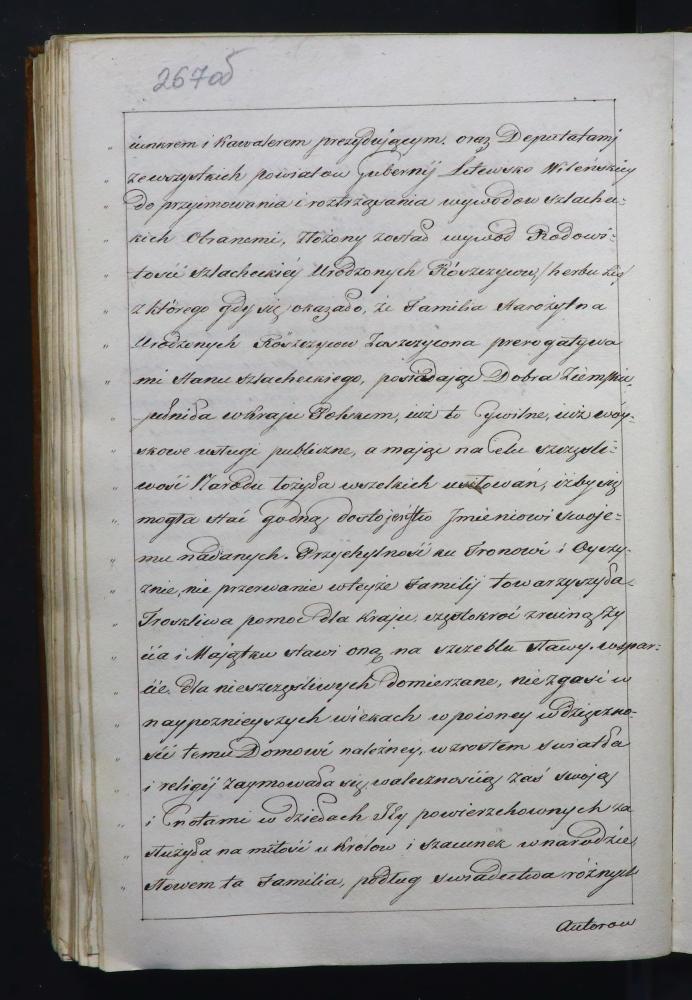 267 об
iunkrem i Kawalerem prezydującym, oraz Deputatami
ze wszystkich powiatow Gubernij Litewsko Wileńskiey
do przyimowania i roztrząsania wywodow szlache-
kich Obranemi, złożony został wywód Rodowi-
tości szlacheckiéy Urodzonych Rószczycow, herbu Lis,
z którego gdy się okazało, że Familia starożytna
Urodzonych Rószczycow Zaszczycona prerogatywa
mi stanu szlacheckiego, posiadając Dobra Ziemskie,
pełniła w Kraju Polskim, iuż to Cywilne, iuż woy-
skowe usługi publiczne, a mając na Celu szczęśli-
wość Narodu łożyła wszelkich usiłowań, iżby się
mogła stać godną dostojeństw Jmieniowi swoje-
mu nadanych. Przychylność ku Tronowi i Oyczy-
znie, nie przerwanie wteyże Familij towarzyszyła
Troskliwa pomoc dla Kraju, częstokroć z ruiną Ży
cia i Majątku stawi oną na szczeblu sławy, wspar-
cie dla nieszczęśliwych domierzane, niezgasi w
naypoznieyszych wiekach wpoioney wdzięczno-
ści temu Domowi należney, wzrostem swiatła
i religij zaymowała się, walecznością zaś swoją
i Cnotami w dziełach powierzchownych za
służyła na miłość u Królow i szacunek w narodzie,
słowem ta Familia, podług swiadectwa różnych
Autorow